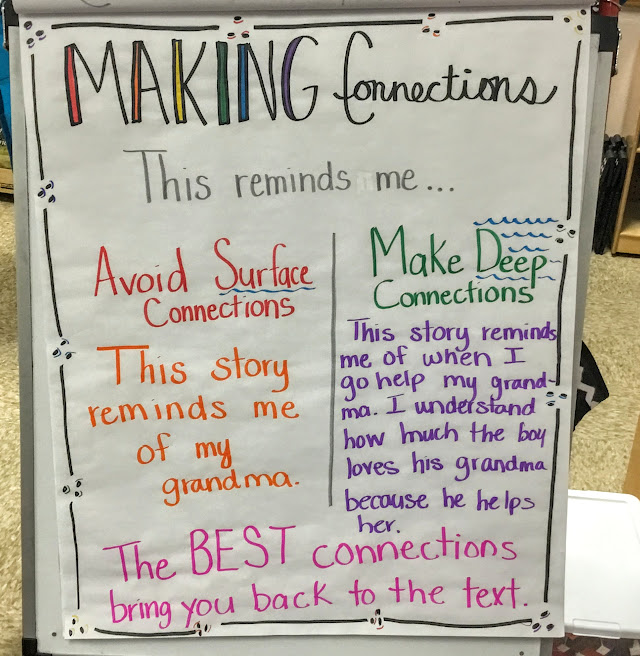 MAKING Connections
This reminds me...
Avoid Surface
Connections
This story
reminds me
of my
grandma.
Make Deep
Connections
This story reminds
me of when I
go help my grand-
ma. I understand
how much the boy
loves his grandma
because he helps
her.
The BEST connections
bring you back to the text.